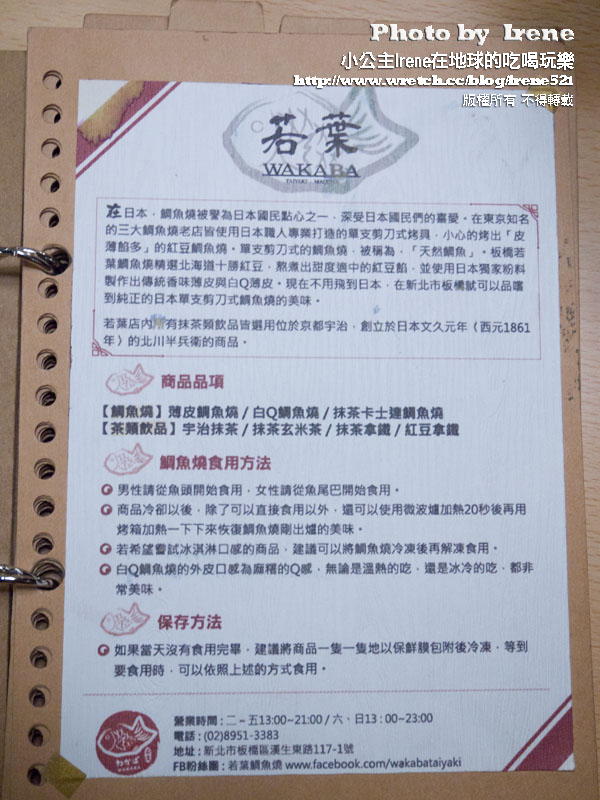 Photo by Irene
小公主Irene在地球的吃喝玩樂
http://www.wretch.cc/blog/irene521
版權所有 不得轉載
若葉
WAKABA
TAIYAKI . MACHIYA
在日本，鯛魚燒被譽為日本國民點心之一，深受日本國民們的喜愛。在東京知名
的三大鯛魚燒老店皆使用日本職人專業打造的單支剪刀式烤具，小心的烤出「皮
薄餡多」的紅豆鯛魚燒。單支剪刀式的鯛魚燒，被稱為，「天然鯛魚」。板橋若
葉鯛魚燒精選北海道十勝紅豆，熬煮出甜度適中的紅豆餡，並使用日本獨家粉料
製作出傳統香味薄皮與白Q薄皮。現在不用飛到日本，在新北市板橋就可以品嚐
到純正的日本單支剪刀式鯛魚燒的美味。
若葉店內所有抹茶類飲品皆選用位於京都宇治，創立於日本文久元年（西元1861
年）的北川半兵衛的商品。
商品品項
【鯛魚燒】薄皮鯛魚燒 / 白Q鯛魚燒 / 抹茶卡士達鯛魚燒
【茶類飲品】宇治抹茶 / 抹茶玄米茶 / 抹茶拿鐵 / 紅豆拿鐵
鯛魚燒食用方法
男性請從魚頭開始食用，女性請從魚尾巴開始食用。
商品冷卻以後，除了可以直接食用以外，還可以使用微波爐加熱20秒後再用
烤箱加熱一下下來恢復鯛魚燒剛出爐的美味。
若希望嘗試冰淇淋口感的商品，建議可以將鯛魚燒冷凍後再解凍食用。
白Q鯛魚燒的外皮口感為麻糬的Q感，無論是溫熱的吃，還是冰冷的吃，都非
常美味。
保存方法
如果當天沒有食用完畢，建議將商品一隻一隻地以保鮮膜包附後冷凍，等到
要食用時，可以依照上述的方式食用。
わかば
WAKABA
營業時間：二～五13:00~21:00 / 六、日13：00~23:00
電話：(02)8951-3383
地址：新北市板橋區漢生東路117-1號
FB粉絲團：若葉鯛魚燒 www.facebook.com/wakabataiyaki